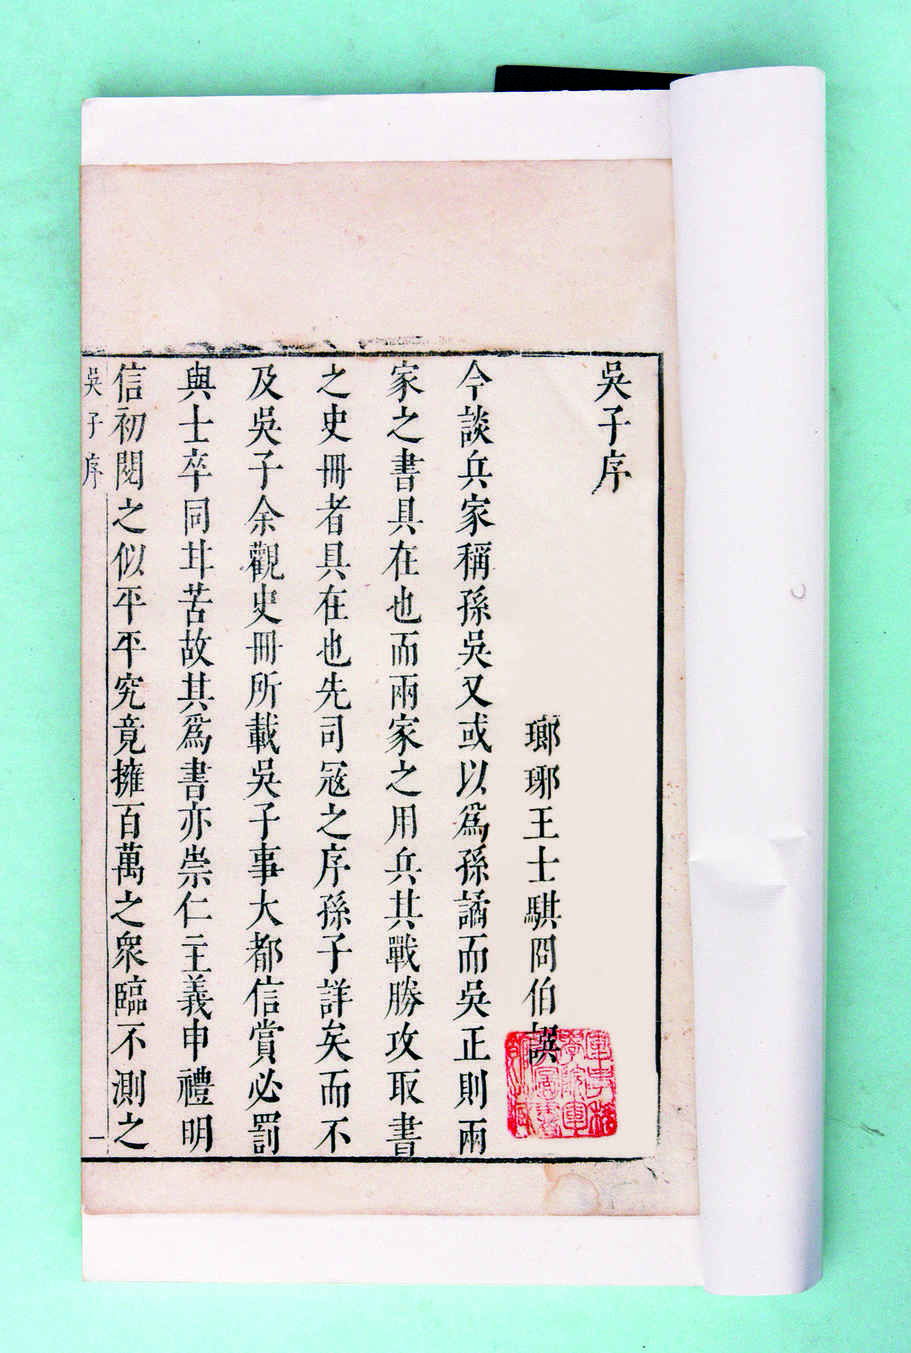 吳子序
瑯琊王士騏冏伯譔
今談兵家稱孫吳又或以爲孫譎而吳正則兩
家之書具在也而兩家之用兵其戰勝攻取書
之史冊者具在也先司寇之序孫子詳矣而不
及吳子余觀史冊所載吳子事大都信賞必罰
與士卒同甘苦故其爲書亦崇仁主義申禮明
信初閱之似平平究竟擁百萬之衆臨不測之
吳子序
一